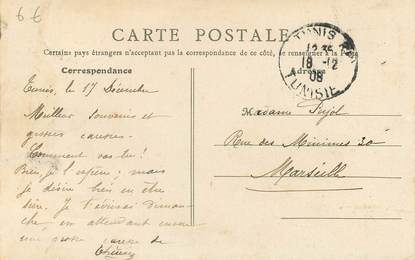 6 €
CARTE POSTALE
Certains pays étrangers n'acceptant pas la correspondance de ce côté, se renseigner à la
Correspondance
Adresse
TUNIS
18-12
08
TUNISIE
Tunis, le 17 Décembre
Meilleurs souvenirs et
grosses caresses.
Comment vas-tu!
Bien, je l'espère; mais
je désire bien en être
sûre. Je t'écrirai diman-
che, en attendant encore
une grosse caresse de
Madame Pujol
Rue des Minimes 30
Marseille